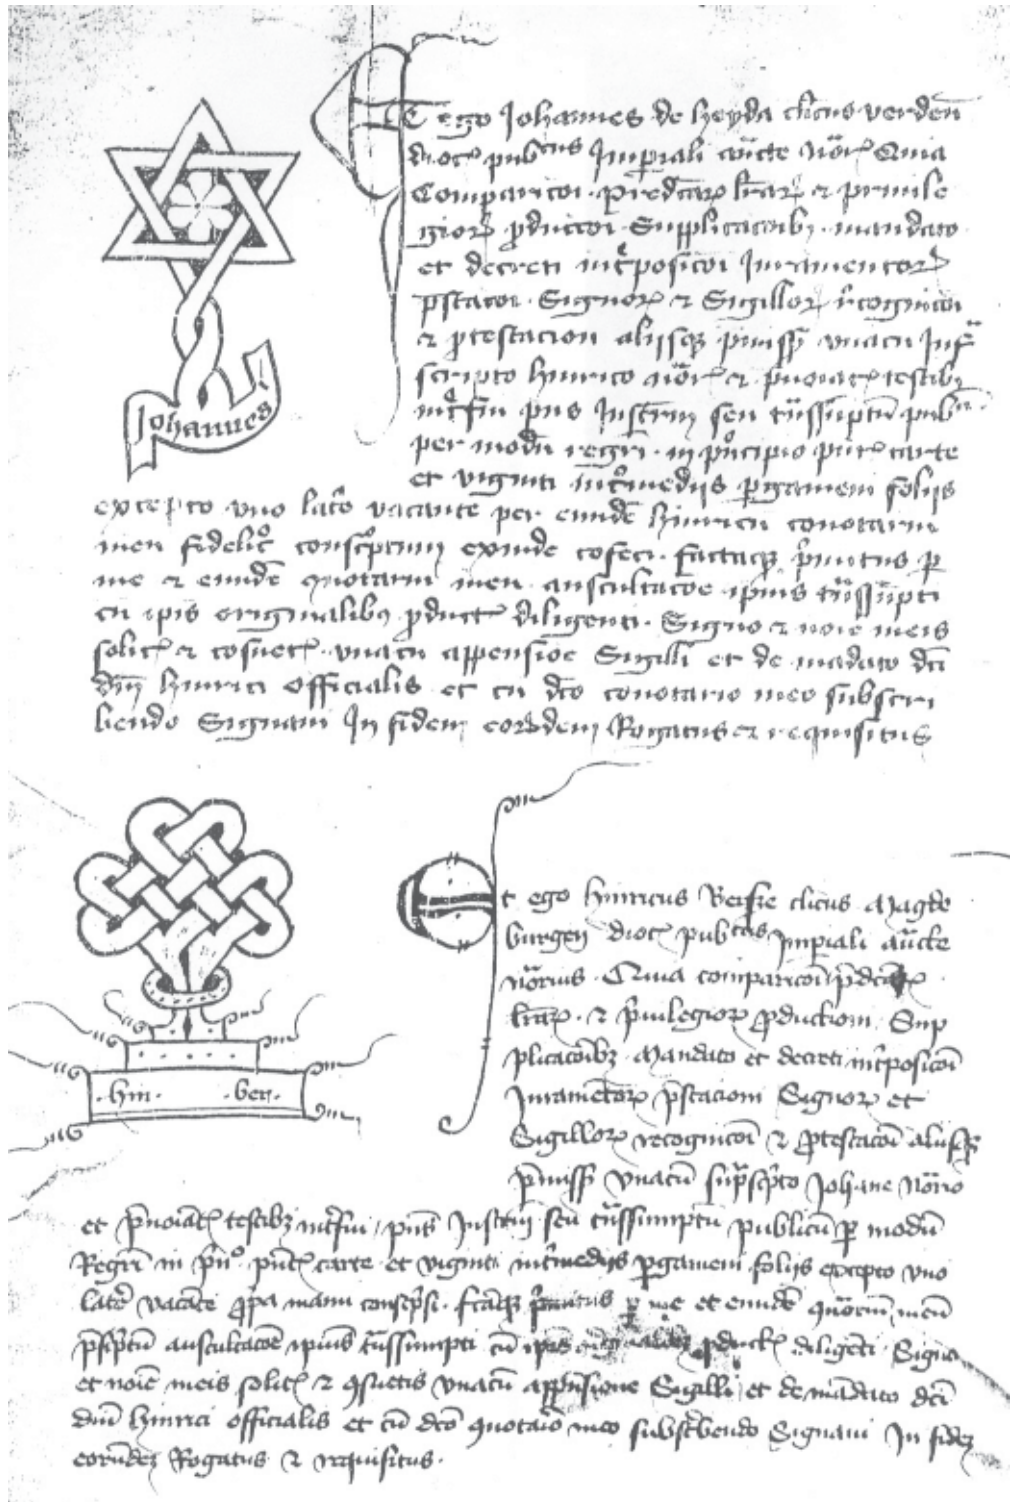 Et ego Johannes de Heyda cl̅icus verden̅
dioc̅ pub^cus Imp̅iali au̅cte no̅r Quia
Comparic̅oi p̅redc̅ar l̅rar̅ et priuile
gior̅ p̅ductoi Supplicac̅oib; mandato
et decreti int̅positoi Juramentor̅
p̅stac̅oi Signor̅ et Sigillor̅ r̅cognic̅oi
et p̅testacion aliisq̅ p̅miss̅ vnacu̅ Inf̅
scripto hinrico no̅r et p̅noiat̅ testib;
int̅fui pn̅s Inst̅rm seu t̅nssu̅ptu̅ pub^m
per modu̅ regr̅i in p̅ncipio pn̅t carte
et viginti int̅medijs p̅gameni folijs
excepto vno lat̅e vacante per eunde̅ hinricu̅ conotariu̅
meu̅ fidelit̅ consc̅ptum exinde co̅feci factaq̅ p̅mitus p̅
me et eunde̅ q̅notariu̅ meu̅ auscultac̅oe ip̅ius t̅nssu̅pti
cu̅ ip̅is originalibus p̅duct̅ diligenti Signo et no̅ie meis
solit̅ et co̅suet̅ vnacu̅ appensio̅e Sigilli et de ma̅dato dc̅i
dn̅i hinrici officialis et cu̅ dc̅o conotario meo subscri
bendo Signaui In fidem eor̅dem Rogatus et requisitus
Johannes
Et ego hinricus cl̅icus Magde
burgen̅ dioc̅ pub^cus Imp̅iali au̅cte
no̅rius Quia comparic̅oi p̅dc̅ar̅
l̅rar̅ et p̅uilegior̅ p̅ductioni Sup
plicac̅oib; Mandato et decreti int̅posic̅oi
Jurame̅tor̅ p̅stacioni Signor̅ et
Sigillor̅ recognic̅oi et p̅testac̅oi aliisq̅
p̅miss̅ vnacu̅ sup̅sc̅pto Joha̅ne No̅rio
et p̅noiat̅ testib; int̅fui pn̅s Inst̅rm seu t̅nssumptu̅ publicu̅ p̅ modu̅
Regr̅i in p̅n^o pn̅t carte et viginti int̅medijs p̅gameni folijs excepto vno
late̅ vaca̅te p̅pa manu consc̅psi f̅caq̅ p̅mitus p̅ me et eunde̅ q̅no̅rium meu̅
p̅sc̅ptu̅ auscultac̅oe ip̅ius t̅nssumpti cu̅ ip̅is p̅duct̅ dilige̅ti Signo
et no̅ie meis solit̅ et q̅suetis vnacu̅ appe̅nsione Sigilli et de ma̅dato dc̅i
dn̅i hinrici officialis et cu̅ dc̅o q̅notaio̅ meo subsc̅bendo Signaui In fidez
eoru̅dez Rogatus et requisitus
hin. ber.